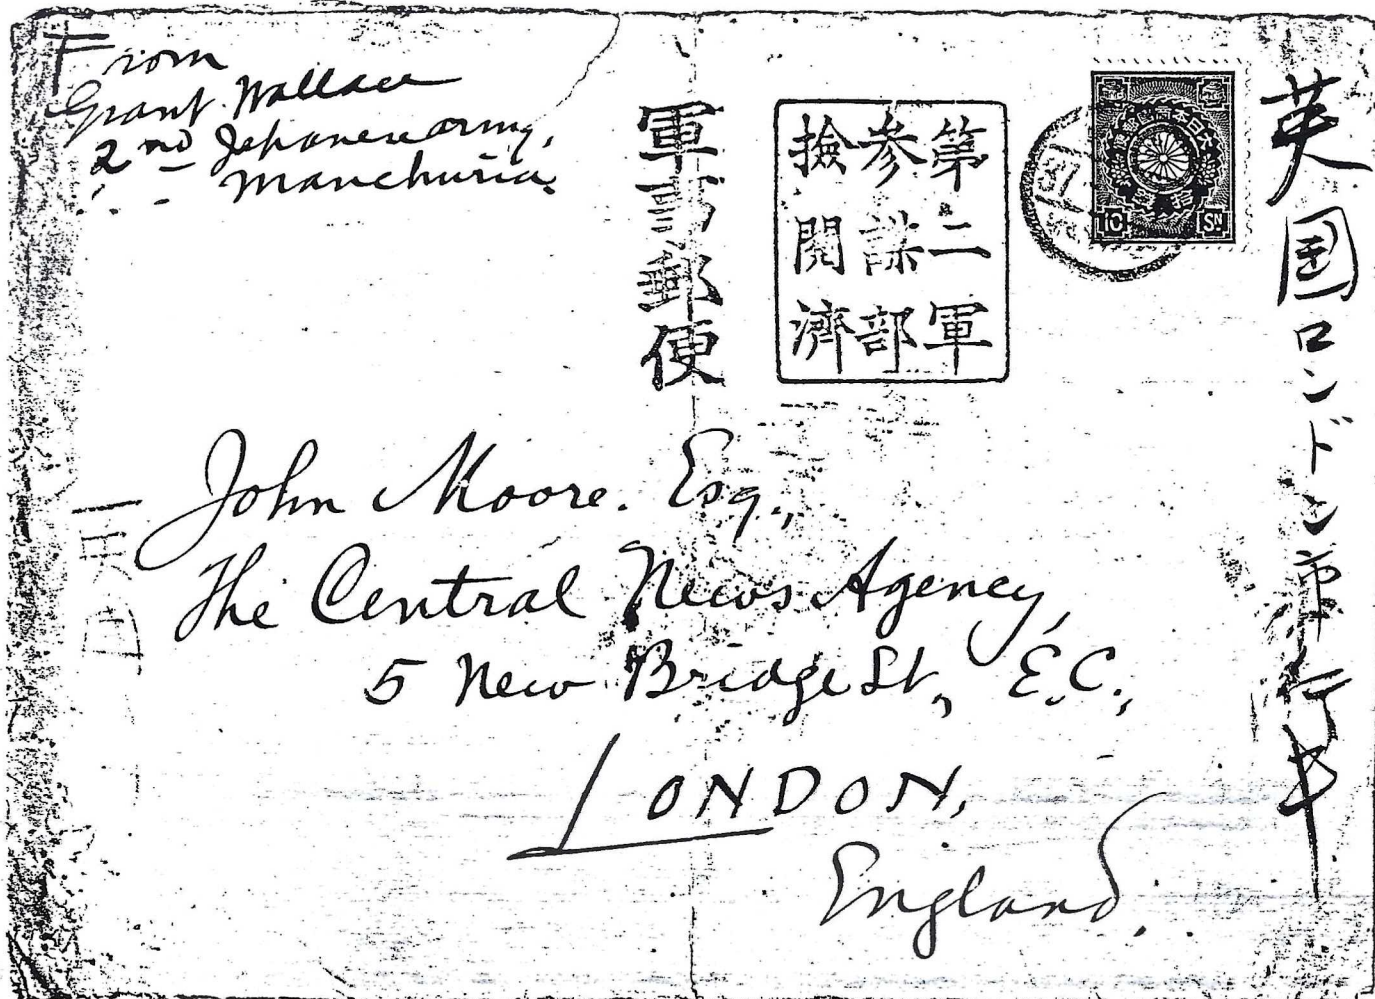 From
Grant Wallace
2nd Japanese army,
Manchuria.
軍事郵便
第二軍
参謀部
撿閲濟
大日本帝國郵便
10 SN
英国ロンドン市行
John Moore. Esq.,
The Central News Agency,
5 New Bridge St., E.C.,
LONDON,
England.